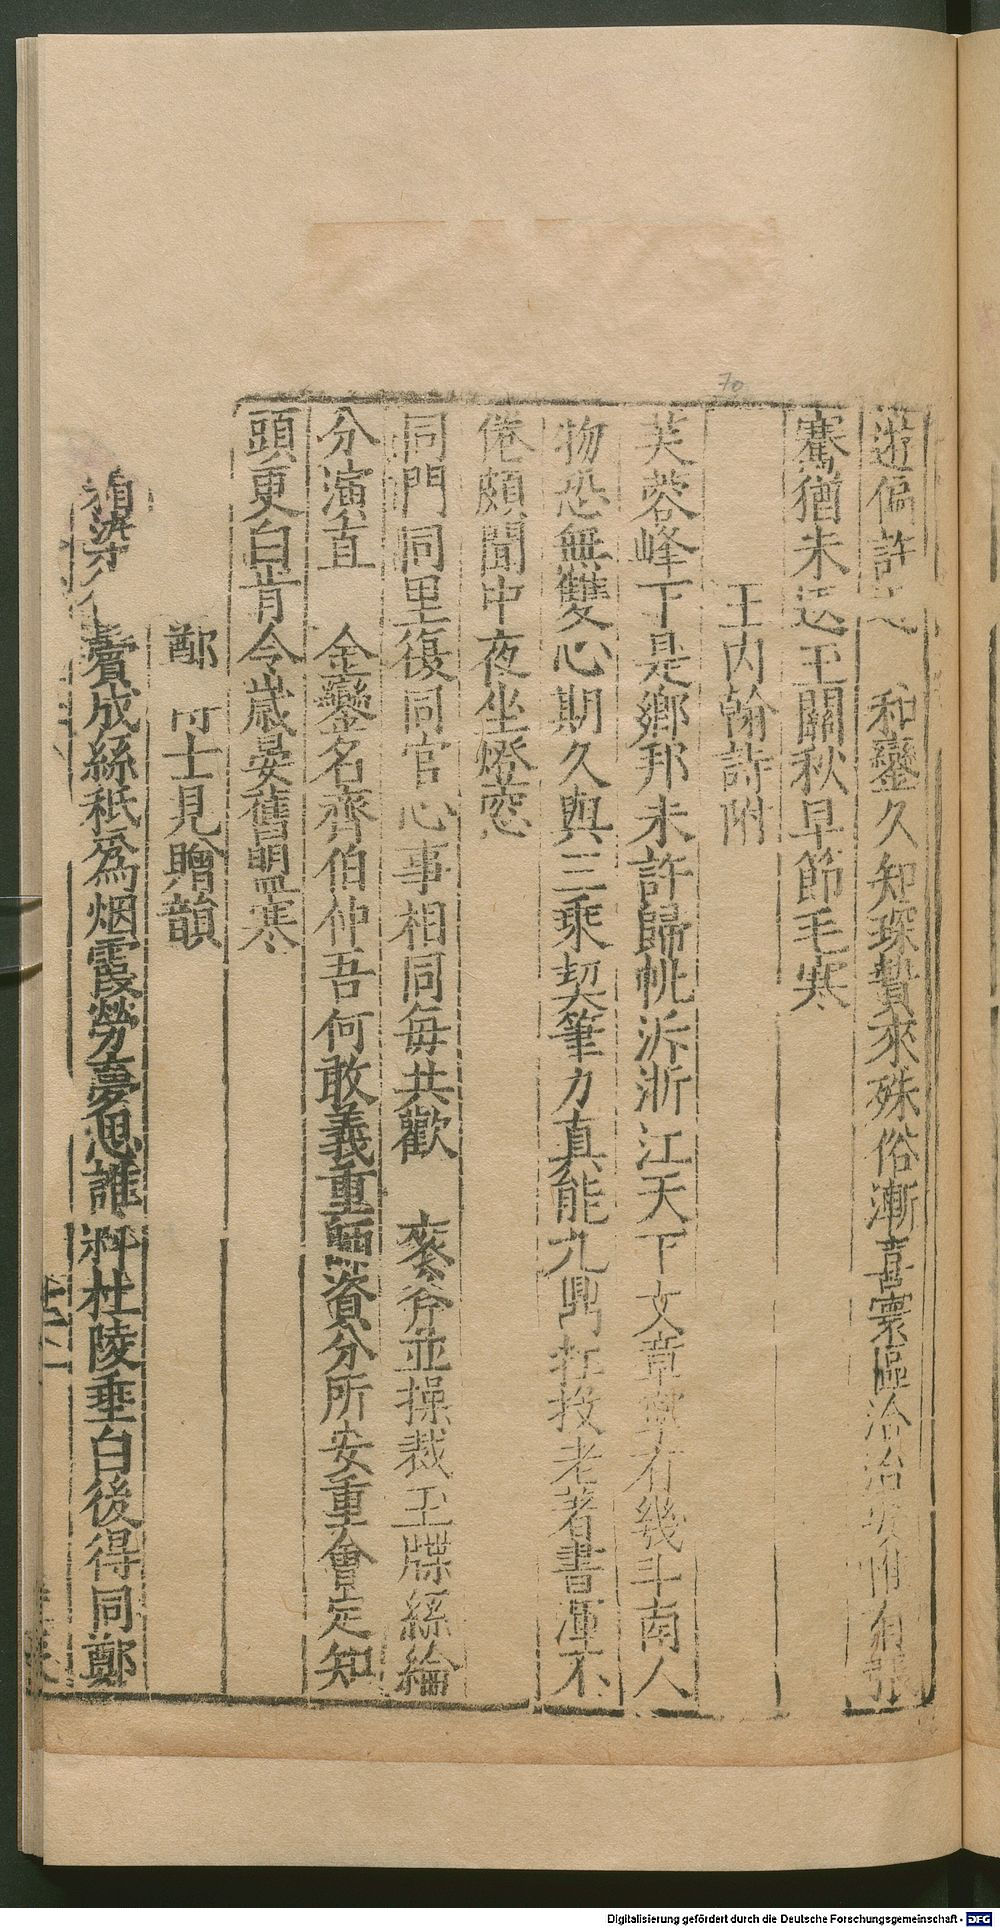 遊偏許 和鑾久知琛贄來殊俗漸喜寰區洽治 張
騫猶未返玉關秋早節毛寒
王内翰詩附
芙蓉峰下是鄉邦未許歸帆泝浙江天下文章寧有幾斗南人
物恐無雙心期久與三乘契筆力真能九鼎扛投老著書渾不
倦頗聞中夜坐燈窓
同門同里復同官心事相同每共歡 衮斧並操裁玉牒絲綸
分演直 金鑾名齊伯仲吾何敢義重師資分所安重會定知
頭更白肯今歲晏舊盟寒
鄭 士見贈韻
鬢成絲秖爲烟霞勞夢思誰料杜陵垂白後得同鄭
70
Digitalisierung gefördert durch die Deutsche Forschungsgemeinschaft - DFG